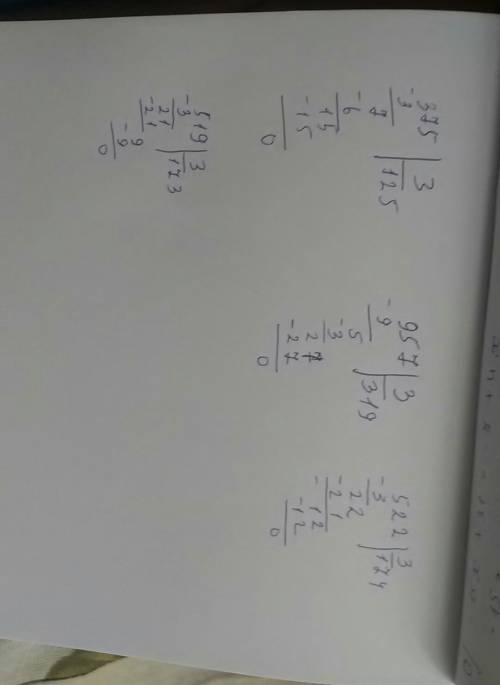 375 | 3
-3 125
7
-6
15
-15
0
957 | 3
-9 319
5
-3
27
-27
0
522 | 3
-3 174
22
-21
12
-12
0
519 | 3
-3 173
21
-21
9
-9
0